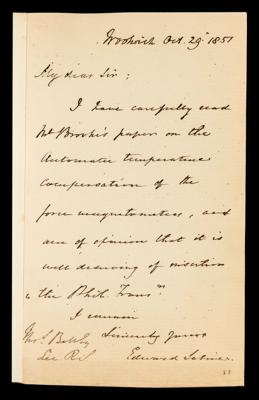 Woolwich Oct. 29. 1851
My dear Sir;
I have carefully read
Mr Brooke's paper on the
Automatic temperature
compensation of the
force magnetometers, and
am of opinion that it is
well deserving of insertion
in the Phil. Trans.ns
I remain
Sincerely yours
Thos. Bell Esq
Sec R.S
Edward Sabine.